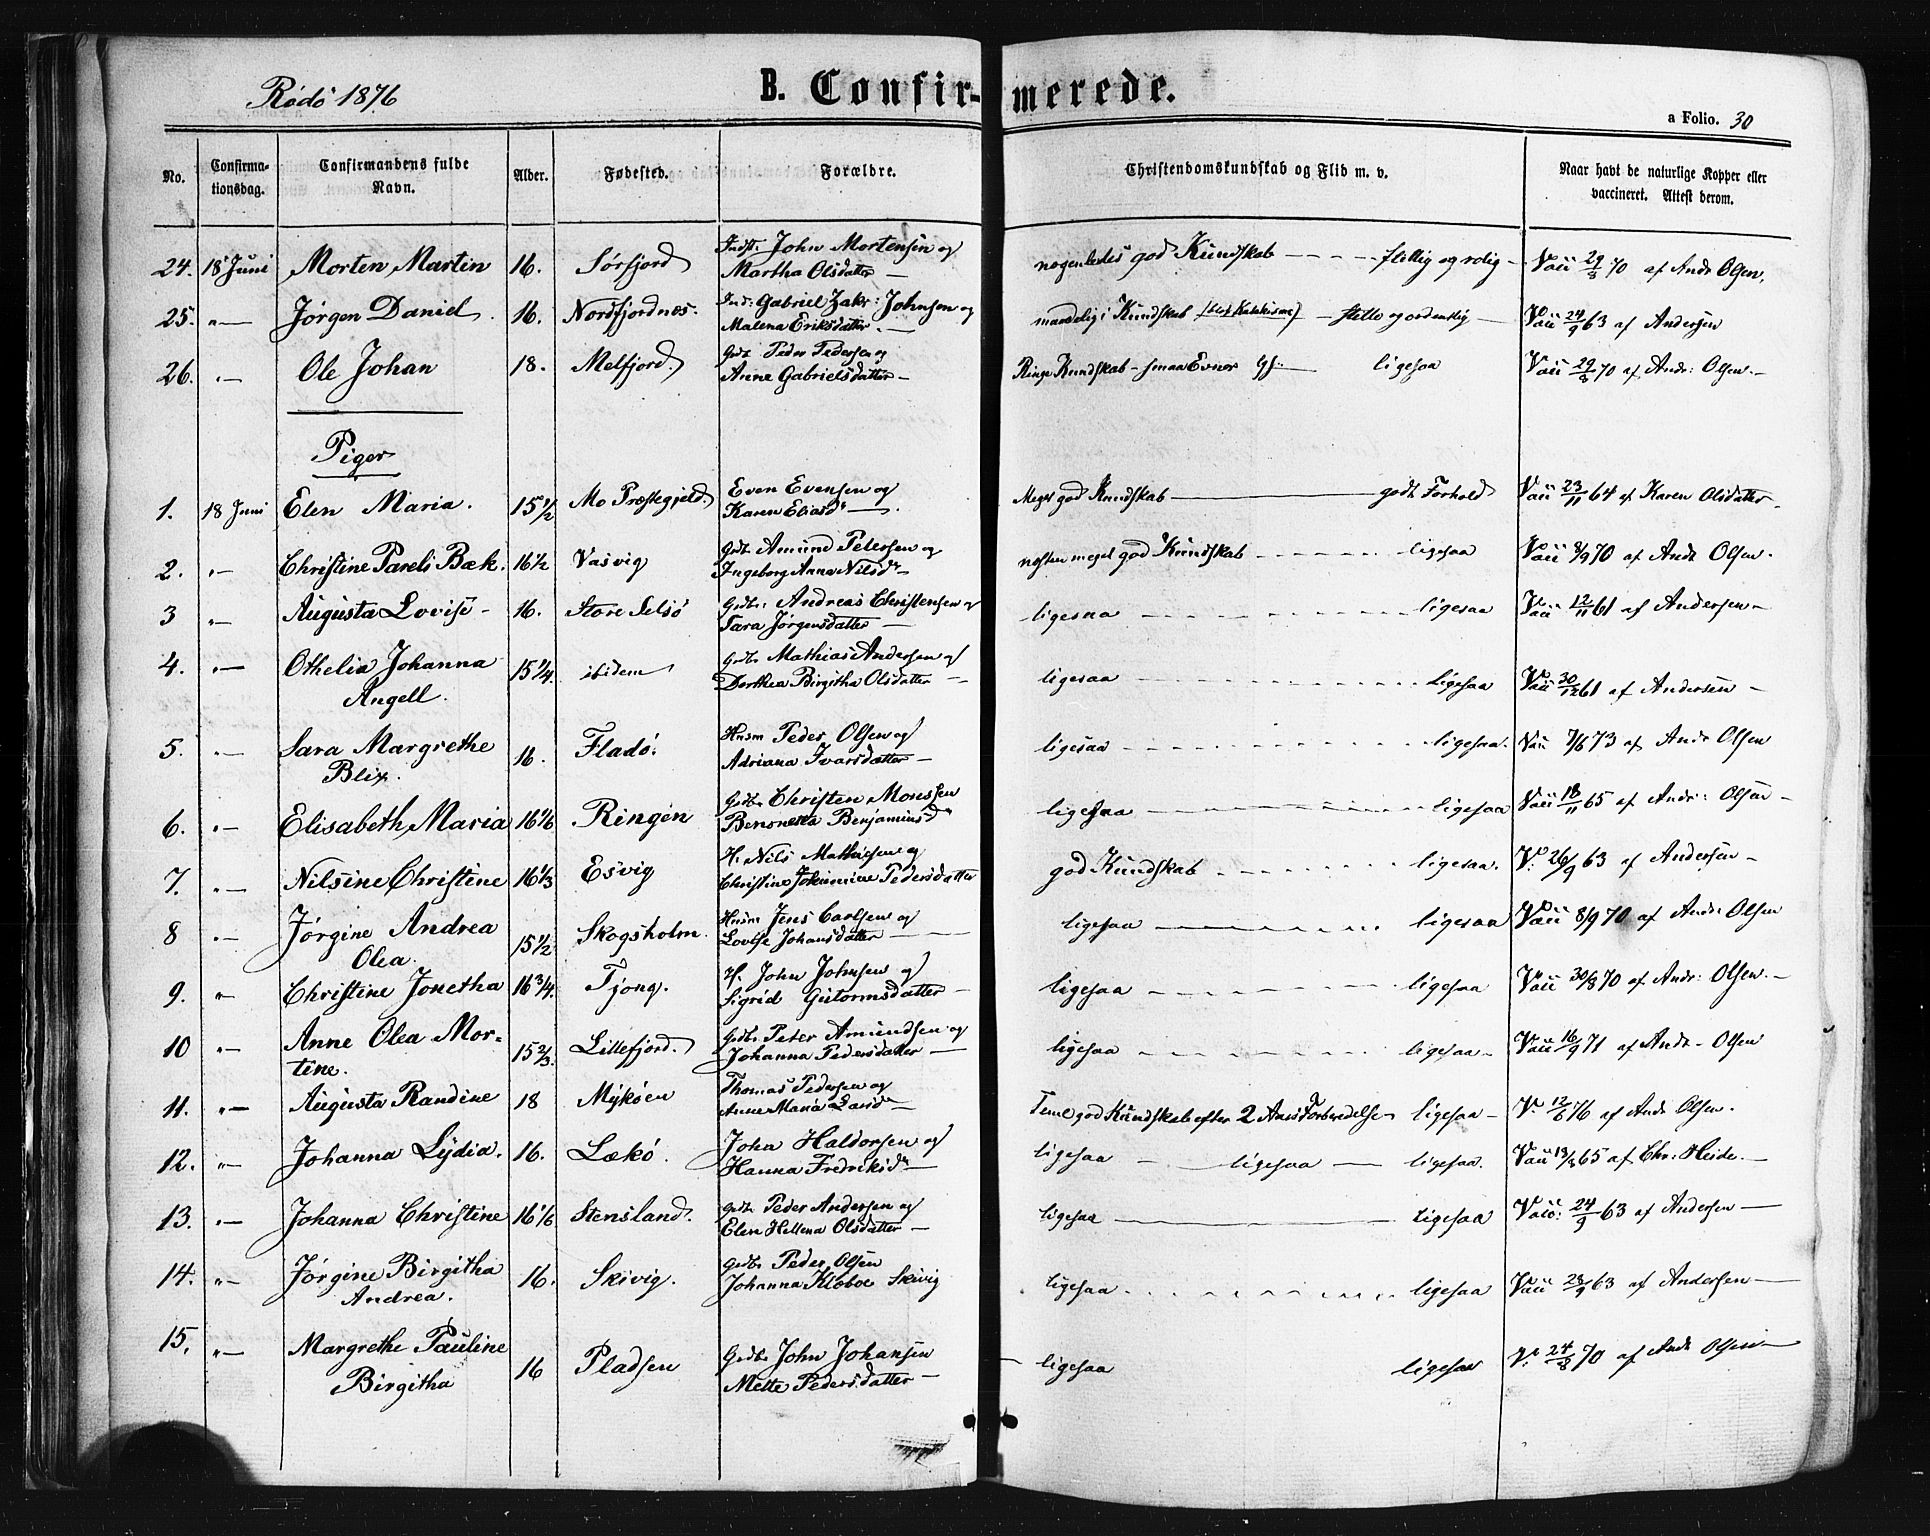 Rødø 1876
B. Confirmerede.
a Folio. 30
No.
Confirma-
tionsdag.
Confirmandens fulde
Navn.
Alder.
Fødested.
Forældre.
Christendomskundskab og Flid m. v.
Naar havt de naturlige Kopper eller
vaccineret. Attest derom.
24. 18 Juni Morten Martin 16. Sørfjord Indst. John Mortensen og
Martha Olsdatter — nogenledes god Kundskab - - - - flittig og rolig - Vacc 29/8 70 af Andr Olsen.
25. " — Jørgen Daniel. 16. Nordfjordnæs. Ind: Gabriel Zakr: Johnsen og
Malena Eriksdatter. — maadelig Kundskab — flitt og ordentlig — Vacc 24/9 63 af Andersen
26. " — Ole Johan 18. Melfjord. Gdb. Peder Pedersen og
Anne Gabrielsdatter — Ringe Kundskab - smaa Evner — ligesaa Vacc 29/8 70 af Andr: Olsen. -
Piger
1. 18 Juni Elen Maria. 15 1/2 Mo Præstegjeld. Even Evensen og
Karen Eliasd. — Meget god Kundskab — godt Forhold Vacc 23/11 64 af Karen Olsdatter.
2. " — Christine Pareli Bæk. 16 1/2 Vasvig Gdb. Amund Petersen og
Ingeborg Anna Nilsdr — næsten meget god Kundskab - - - - ligesaa Vacc 8/9 70 af Andr Olsen.
3 " — Augusta Lovise - 16. Store Selsø Gdbr: Andreas Christensen og
Sara Jørgensdatter — ligesaa - - - - ligesaa Vacc 12/11 61 af Andersen -
4. " — Othelia Johanna
Angell. 15 1/4. ibidem Gdbr Mathias Andersen og
Dorthea Birgitha Olsdatter — ligesaa - - - - ligesaa Vacc 30/12 61 af Andersen -
5. " — Sara Margrethe
Blix. 16. Fladø. Husm Peder Olsen og
Adriana Ivarsdatter — ligesaa - - - - ligesaa. Vacc 7/6 73 af Andr Olsen
6. " — Elisabeth Maria 16 1/6 Ringen Gdbr Christen Monssen
Benjaminsd. ligesaa - - - - ligesaa Vacc 18/11 65 af Andr: Olsen -
7. " — Nilsine Christine 16 1/3 Esvig H. Nils Mathiesen og
Christine Pedersdatter god Kundskab - - - - ligesaa. V. 26/9 63 af Andersen -
8 " — Jørgine Andrea
Olea. 15 1/2 Skogsholm. Husm Jens Carlsen og
Lovise Johansdatter — ligesaa — ligesaa Vacc 8/9 70 af Andr Olsen
9. " Christine Jonetha 16 3/4. Tjong. H. John Johnsen og
Sigrid Gutormsdatter — ligesaa — ligesaa Vacc 30/8 70 af Andr: Olsen. -
10 " — Anne Olea Mor-
tine. 15 2/3. Lillefjord. Gdb. Peter Amundsen og
Johanna Pedersdatter — ligesaa — ligesaa - Vacc 16/9 71 af Andr - Olsen
11. " — Augusta Randine 18 Mykøen Thomas Pedersen og
Anne Maria Larsd. — Teml. god Kundskab efter 2 Aars Forberedelse ligesaa - V. 12/6 76 af Andr Olsen.
12. " — Johanna Lydia. 16. Lækø. John Haldorsen og
Hanna Fredriksd. — ligesaa — ligesaa — ligesaa. Vacc 13/8 65 af Chr: Heide. -
13. " — Johanna Christine 16 1/6 Stensland. Gdb. Peder Andersen og
Elen Hellena Olsdatter — ligesaa — ligesaa Vacc: 24/9 63 af Andersen —
14. " — Jørgine Birgitha
Andrea. 16. Skivig. Gdb. Peder Olsen
Johanna Kloboe Skivig ligesaa - - - - ligesaa Vacc 28/9 63 af Andersen —
15. " — Margrethe Pauline
Birgitha 16 Pladsen Gdb. John Johansen
Mette Pedersdatter — ligesaa ligesaa V. 24/8 70 af Andr Olsen —